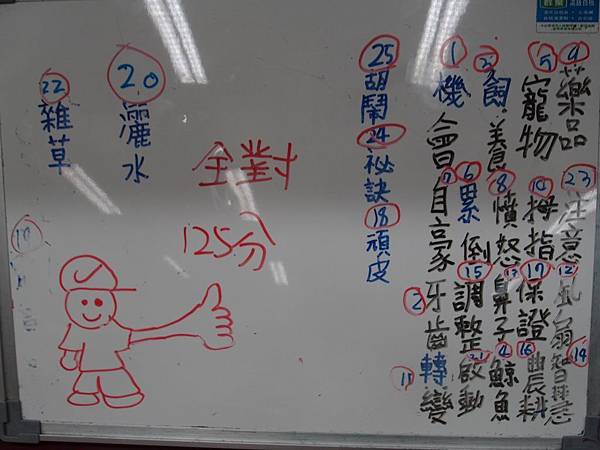 9
藥品
23
注意
12
風扇
14
5
寵物
10
拇指
17
保證
16
農耕
3
飼養
8
憤怒
13
鼻子
4
鯨魚
1
機會
6
累倒
15
調整
21
啟動
7
2
牙齒
11
轉變
25
胡鬧
24
祕訣
18
頑皮
全對
125分
20
灑水
22
雜草
19